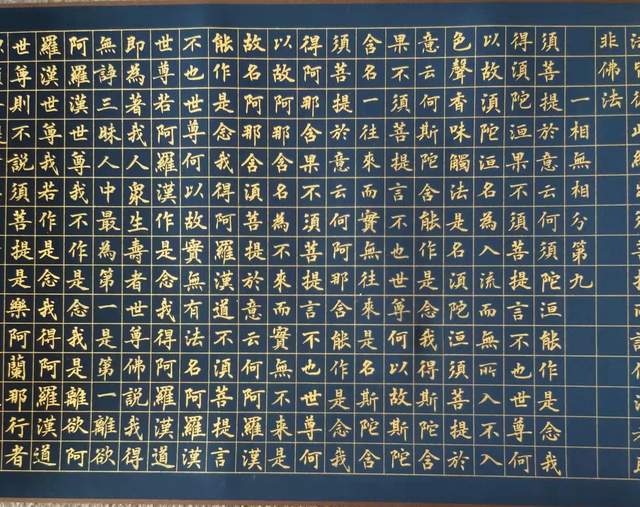 非佛法
一相無相分第九
須菩提於意云何須陀洹能作是念我
得須陀洹果不須菩提言不也世尊何
以故須陀洹名為入流而無所入不入
色聲香味觸法是名須陀洹須菩提於
意云何斯陀含能作是念我得斯陀含
果不須菩提言不也世尊何以故斯陀
含名一往來而實無往來是名斯陀含
須菩提於意云何阿那含能作是念我
得阿那含果不須菩提言不也世尊何
以故阿那含名為不來而實無不來是
故名阿那含須菩提於意云何阿羅漢
能作是念我得阿羅漢道不須菩提言
不也世尊何以故實無有法名阿羅漢
世尊若阿羅漢作是念我得阿羅漢道
即為著我人眾生壽者世尊佛說我得
無諍三昧人中最為第一是第一離欲
阿羅漢世尊我不作是念我是離欲阿
羅漢世尊我若作是念我得阿羅漢道
世尊則不說須菩提是樂阿蘭那行者